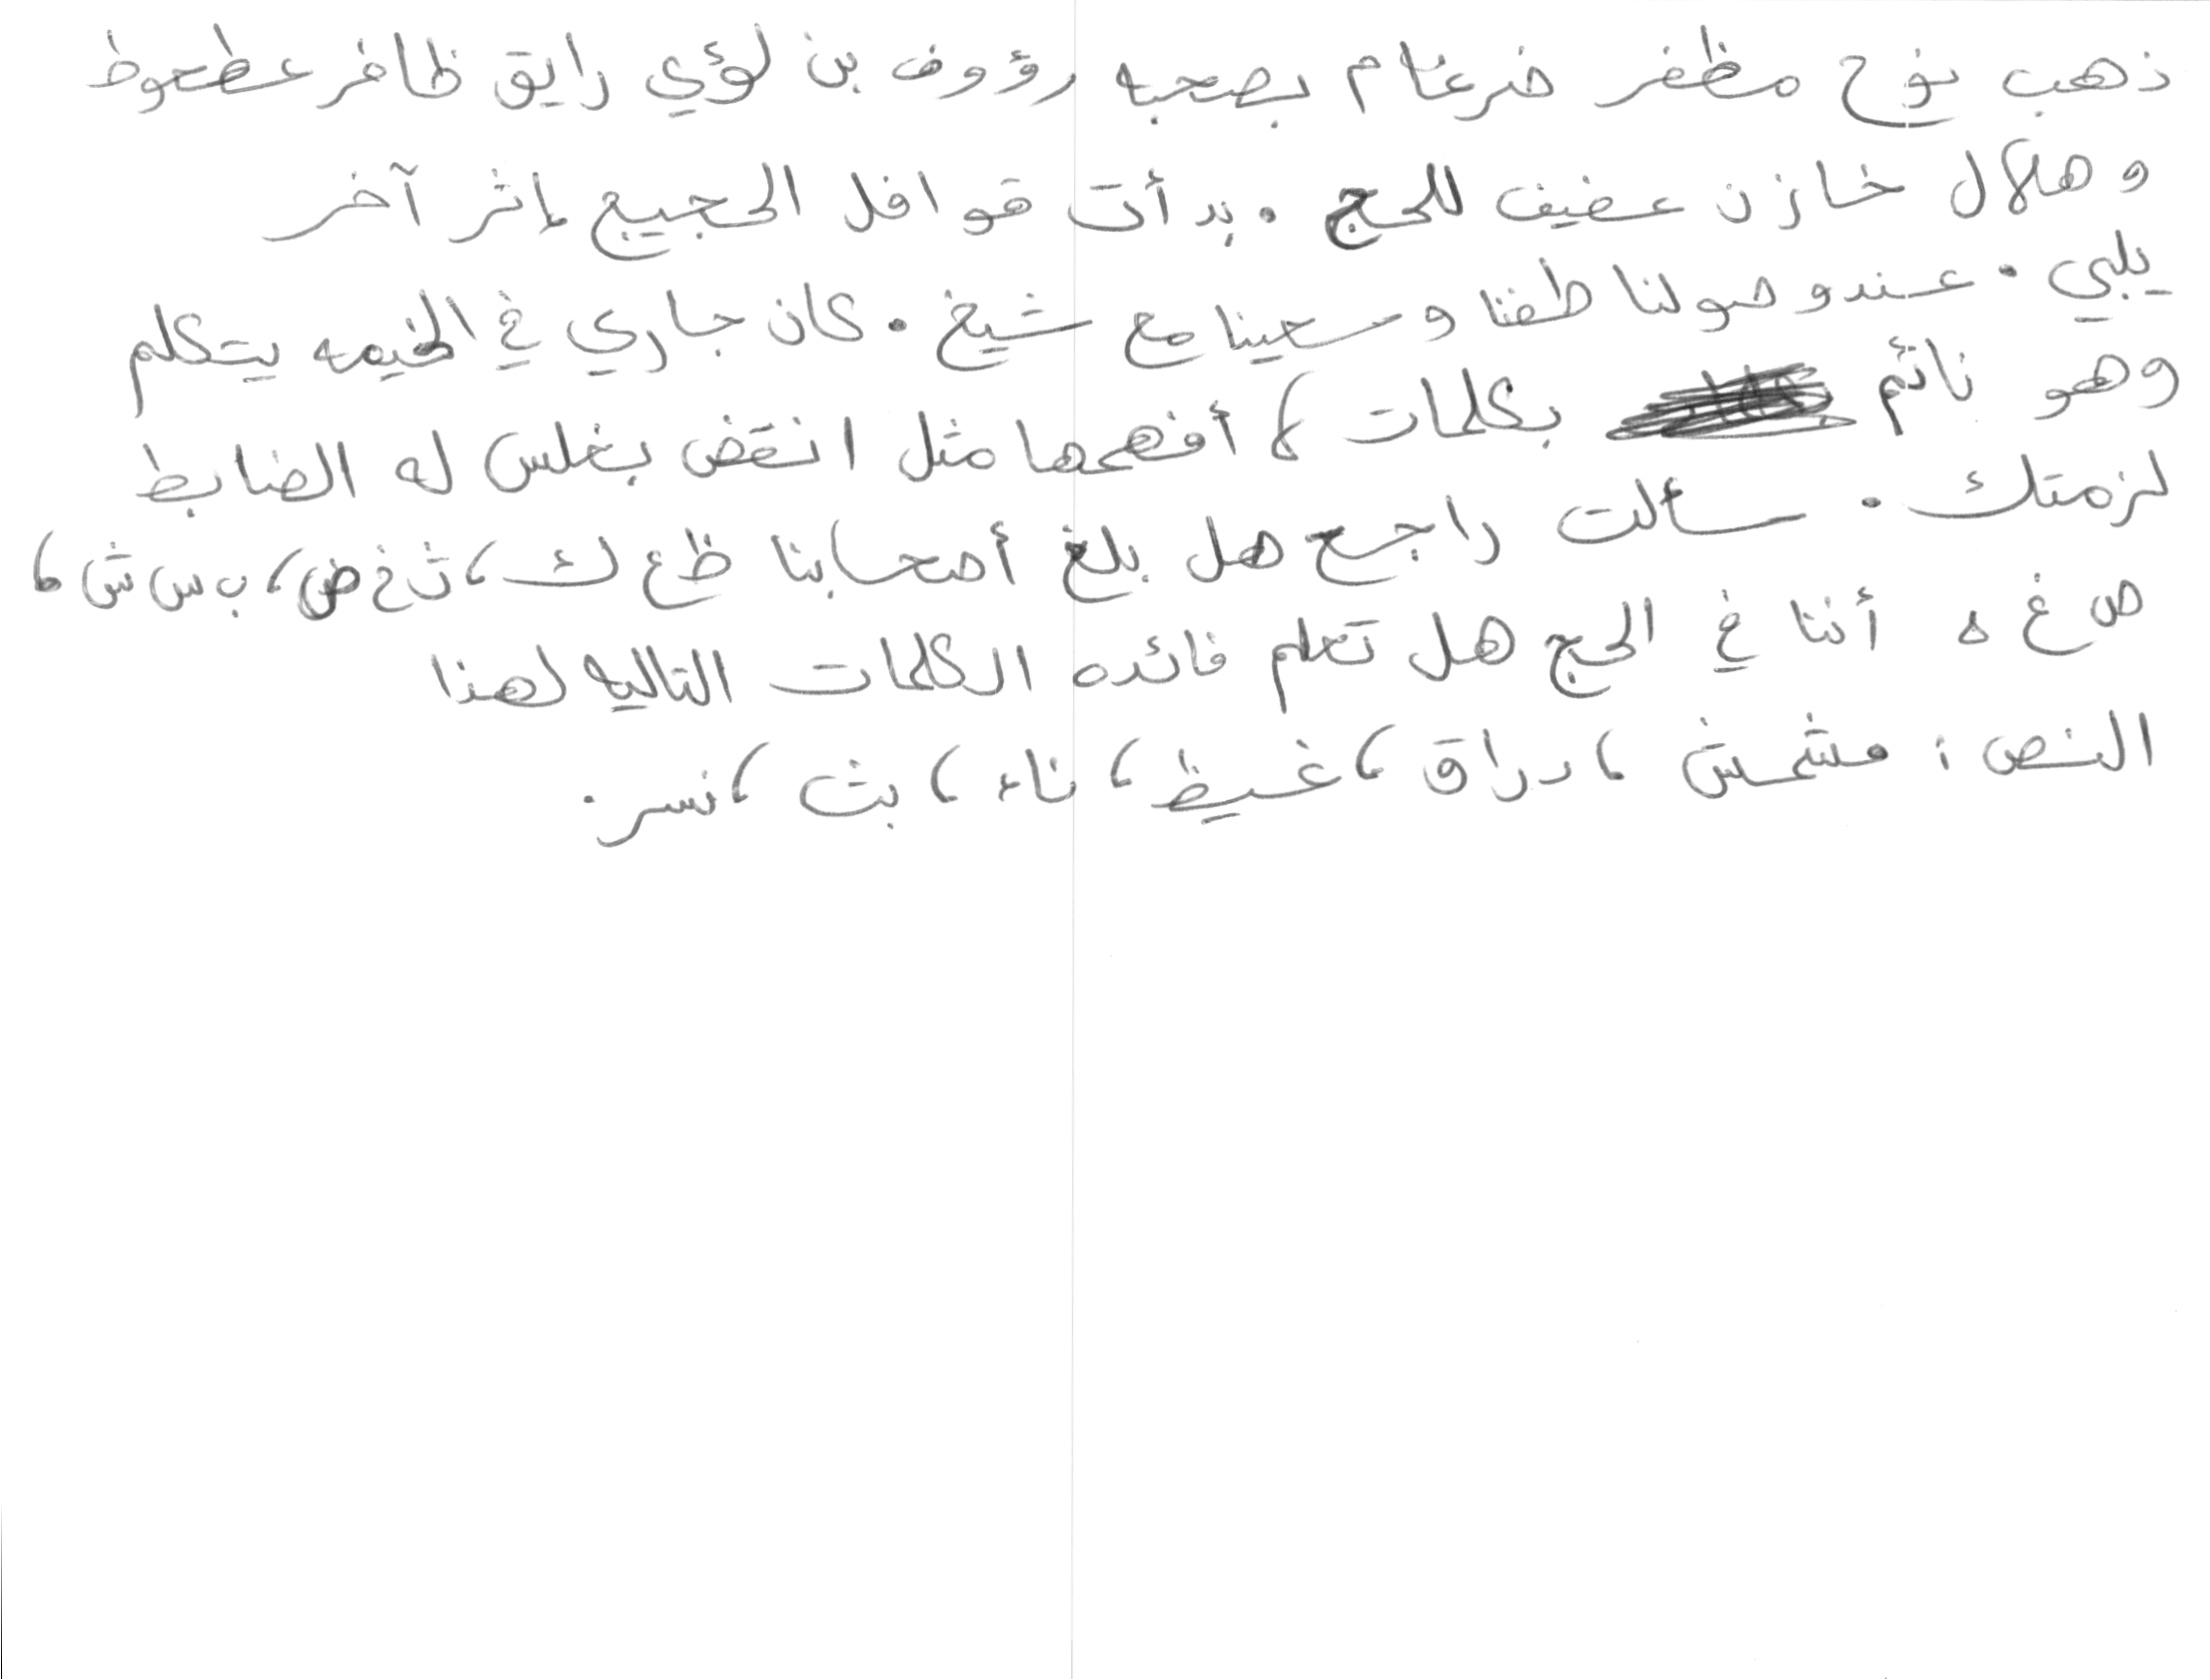 ذهب نوح مظفر ضرغام بصحبه رؤوف بن لؤي رايق ظافر عطعوط
وهلال خازن عفيف للحج . بدأت قوافل الحجيج إثر آخر
يلبي . عند وصولنا طفنا وسعينا مع شيخ . كان جاري في الخيمه يتكلم
وهو نائم بكلمات لا أفهمها مثل انقض بغلس له الضابط
لزمتك . سألت راجح هل بلغ أصحابنا ظ ع ك ، ث خ ض ، ب س ش ،
ص غ ه أننا في الحج هل تعلم فائده الكلمات التاليه لهذا
النص : مشمش ، دراق ، غيظ ، ناء ، بث ، نسر .